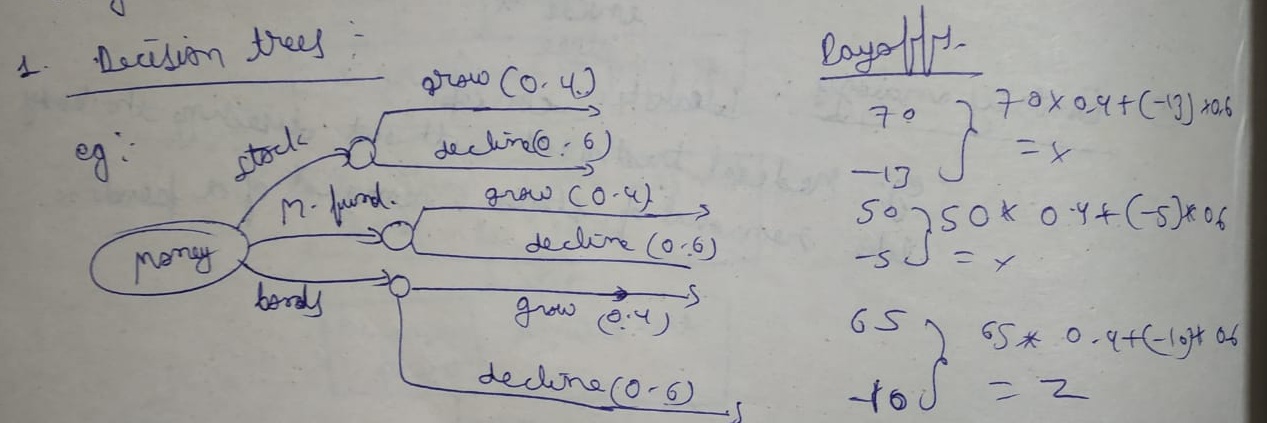 1. Decision trees :
Payoffs.
eg :
grow (0.4)
70
70 x 0.4 + (-13) x0.6
stock
decline(0.6)
-13
= x
M. fund.
grow (0.4)
50
50 * 0.4 + (-5) * 0.6
money
decline (0.6)
-5
= y
bonds
grow (0.4)
65
65 * 0.4 + (-10) * 0.6
decline (0.6)
-10
= z